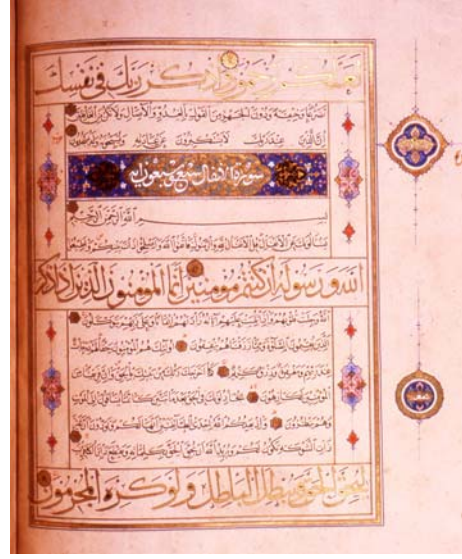 لعلكم ترحمون واذكر ربك في نفسك
تضرعا وخيفة ودون الجهر من القول بالغدو والآصال ولا تكن من الغافلين
ان الذين عند ربك لا يستكبرون عن عبادته ويسبحونه وله يسجدون
سورة الانفال سبع وسبعون اية
بسم الله الرحمن الرحيم
يسألونك عن الانفال قل الانفال لله والرسول فاتقوا الله واصلحوا ذات بينكم واطيعوا
الله ورسوله ان كنتم مومنين انما المومنون الذين اذا ذكر
الله وجلت قلوبهم واذا تليت عليهم اياته زادتهم ايمانا وعلى ربهم يتوكلون
الذين يقيمون الصلوة ومما رزقناهم ينفقون اولئك هم المومنون حقا لهم درجات
عند ربهم ومغفرة ورزق كريم كما اخرجك ربك من بيتك بالحق وان فريقا من
المومنين لكارهون يجادلونك في الحق بعد ما تبين كانما يساقون الى الموت
وهم ينظرون واذ يعدكم الله احدى الطائفتين انها لكم وتودون ان غير
ذات الشوكة تكون لكم ويريد الله ان يحق الحق بكلماته ويقطع دابر الكافرين
ليحق الحق ويبطل الباطل ولو كره المجرمون